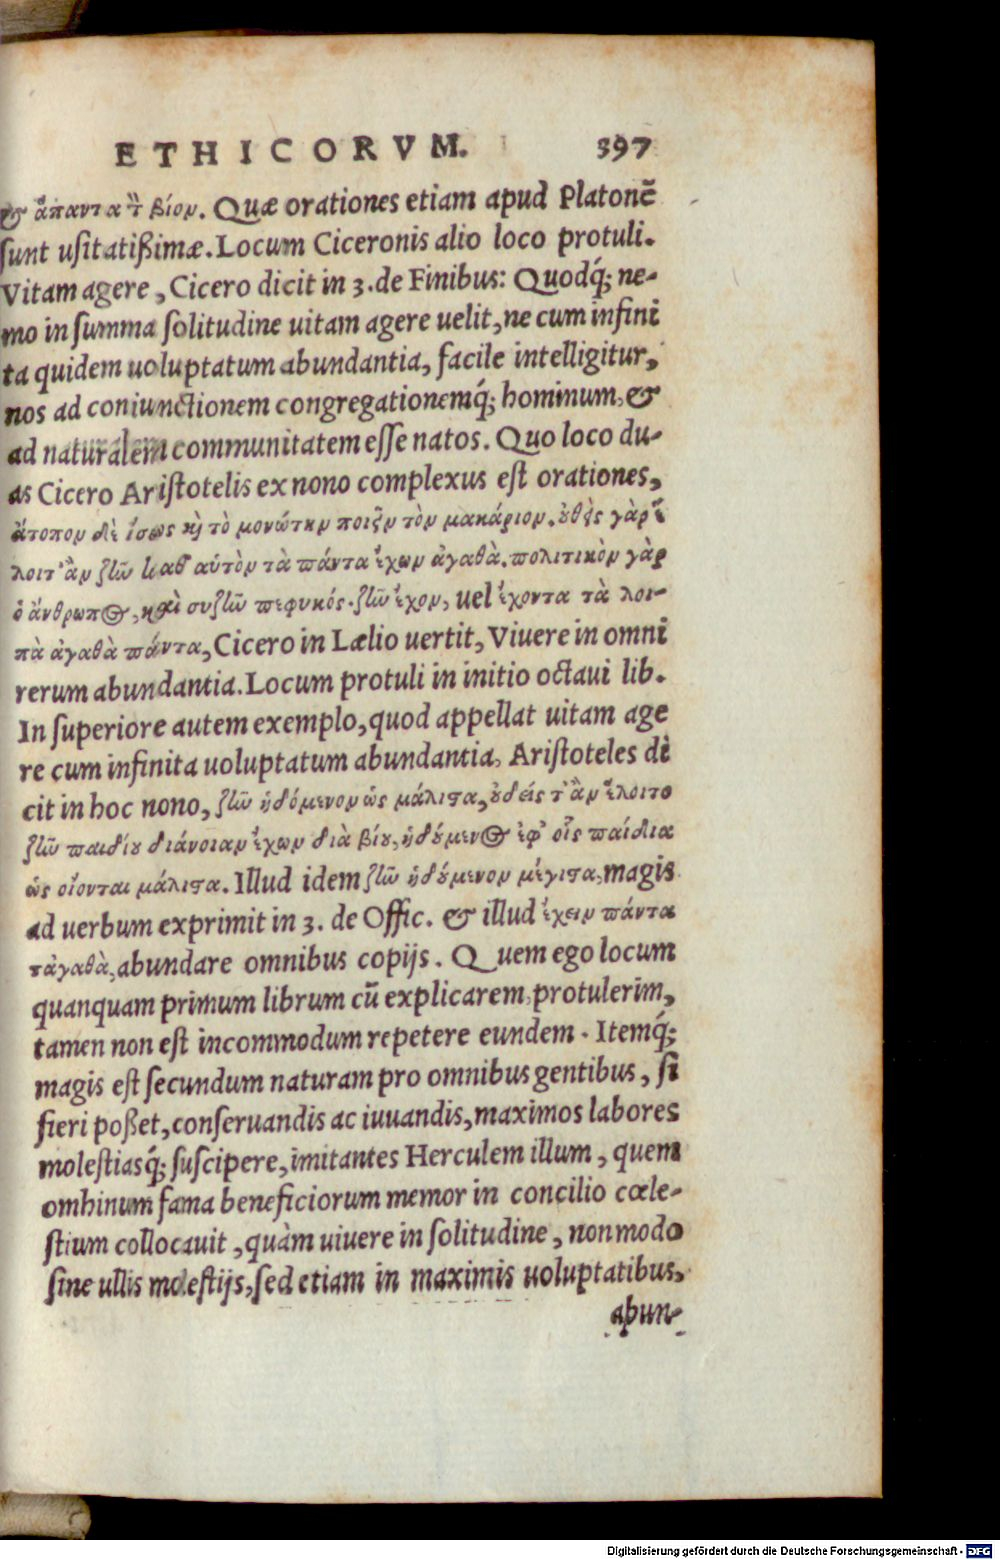 ETHICORVM. 397
& ἅπαντα τ̃ βίον. Quæ orationes etiam apud Platonẽ
sunt usitatißimæ. Locum Ciceronis alio loco protuli.
Vitam agere, Cicero dicit in 3. de Finibus: Quodq́; ne-
mo in summa solitudine uitam agere uelit, ne cum infini
ta quidem uoluptatum abundantia, facile intelligitur,
nos ad coniunctionem congregationemq́; hominum, &
ad naturalem communitatem esse natos. Quo loco du-
as Cicero Aristotelis ex nono complexus est orationes,
ἄτοπον δὲ ἴσως κὴ τὸ μονώτην ποιεῖν τὸν μακάριον. ȣ̓θεὶς γὰρ ἕ
λοιτ' ἂν ζῶ καθ' αὑτὸν τὰ πάντα ἔχων ἀγαθὰ. πολιτικὸν γὰρ
ὁ ἄνθρωπος, καὶ συζῶ πεφυκός. ζῶ ἔχον, uel ἔχοντα τὰ λοι-
πὰ ἀγαθὰ πάντα, Cicero in Lælio uertit, Viuere in omni
rerum abundantia. Locum protuli in initio octaui lib.
In superiore autem exemplo, quod appellat uitam age
re cum infinita uoluptatum abundantia, Aristoteles di
cit in hoc nono, ζῶ ἡδόμενον ὡς μάλιϛα, ȣ̓δείς τ' ἂν ἕλοιτο
ζῶ παιδίȣ διάνοιαν ἔχων διὰ βίȣ, ἡδόμενος ἐφ' οἷς παίδια
ὡς οἴονται μάλιϛα. Illud idem ζῶ ἡδόμενον μέγιϛα, magis
ad uerbum exprimit in 3. de Offic. & illud ἔχειν πάντα
τἀγαθὰ, abundare omnibus copijs. Quem ego locum
quanquam primum librum cũ explicarem, protulerim,
tamen non est incommodum repetere eundem. Itemq́;
magis est secundum naturam pro omnibus gentibus, si
fieri poßet, conseruandis ac iuuandis, maximos labores
molestiasq́; suscipere, imitantes Herculem illum, quem
omhinum fama beneficiorum memor in concilio cœle-
stium collocauit, quàm uiuere in solitudine, non modo
sine ullis molestijs, sed etiam in maximis uoluptatibus,
abun-
Digitalisierung gefördert durch die Deutsche Forschungsgemeinschaft - DFG